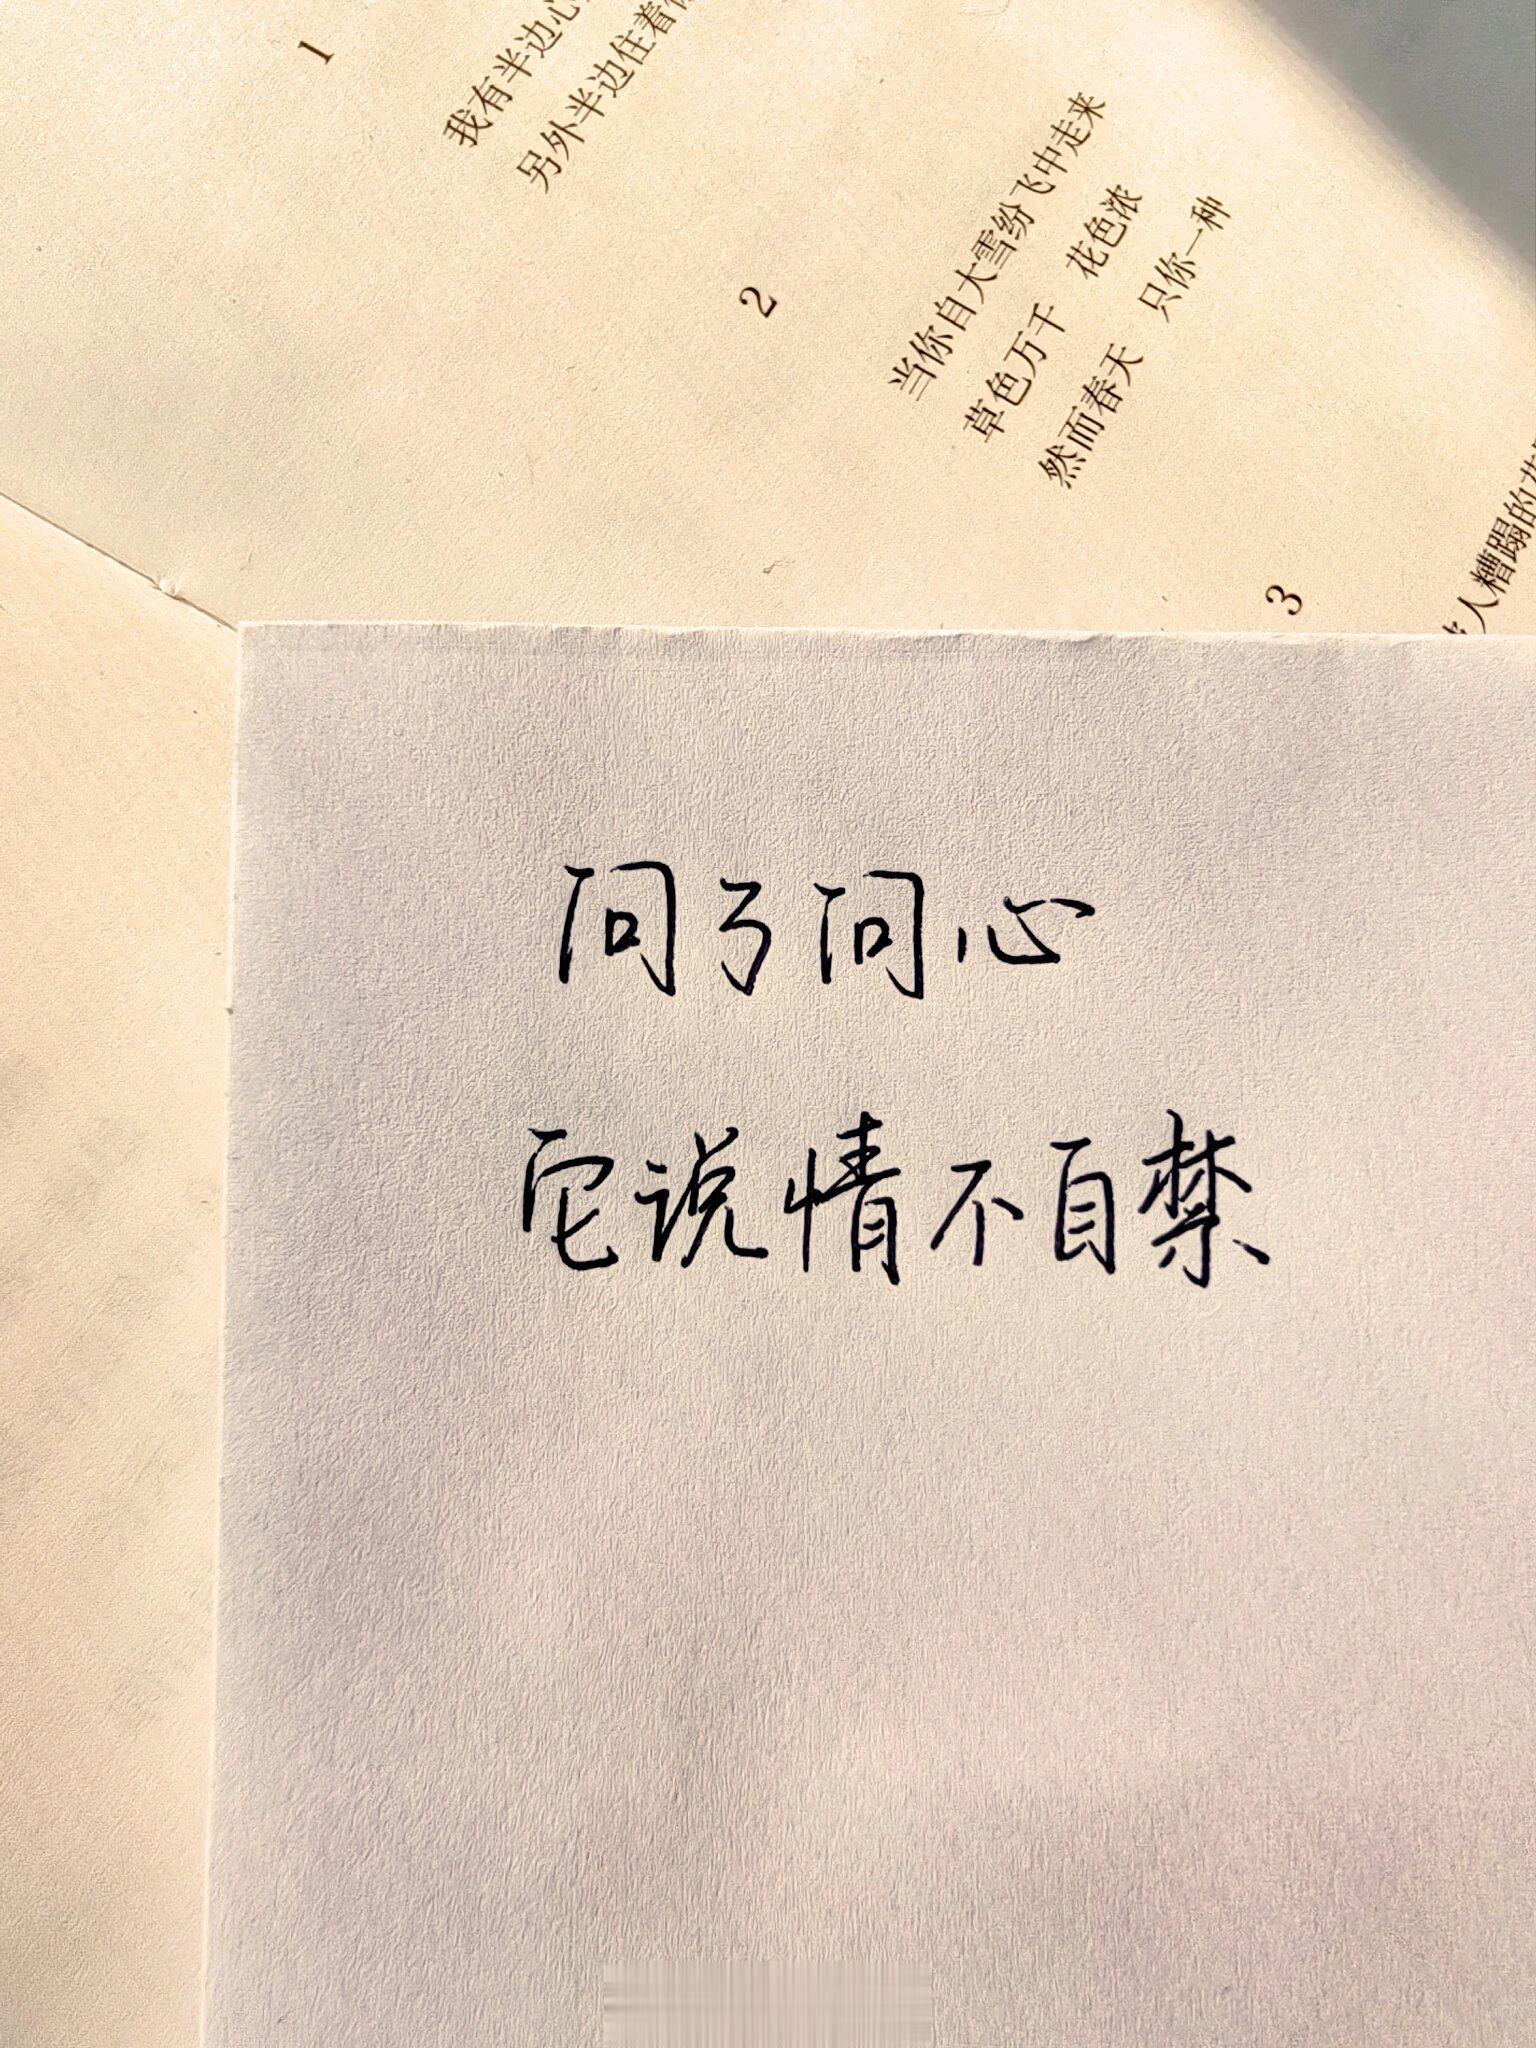 1
我有半边心
另外半边住着你
2
当你自大雪纷飞中走来
草色万千 花色浓
然而春天 只你一种
3
人糟蹋的花
问了问心
它说情不自禁